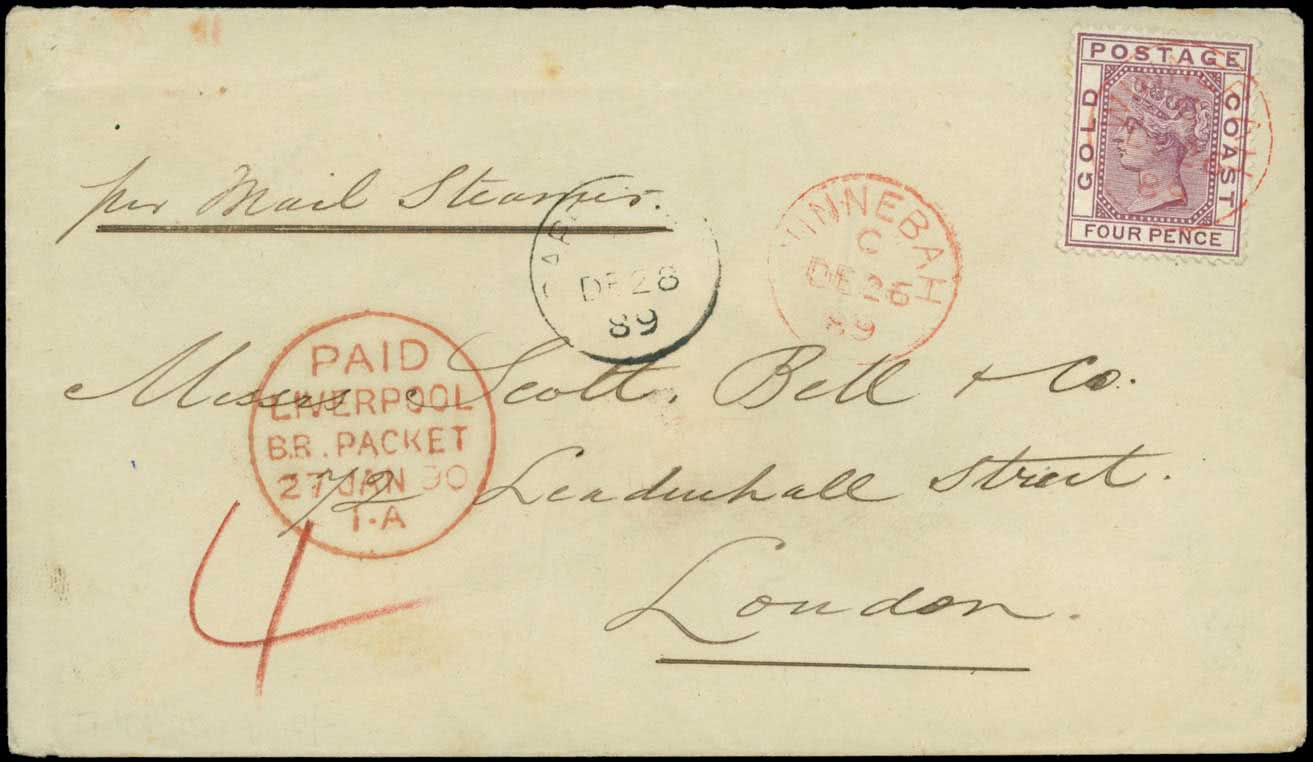 POSTAGE
GOLD COAST
FOUR PENCE
per Mail Steamer.
DE 28
89
WINNEBAH
C
DE 26
89
PAID
LIVERPOOL
BR. PACKET
27 JAN 90
1·A
Messrs Scott, Bell & Co.
Leadenhall Street.
London.
4